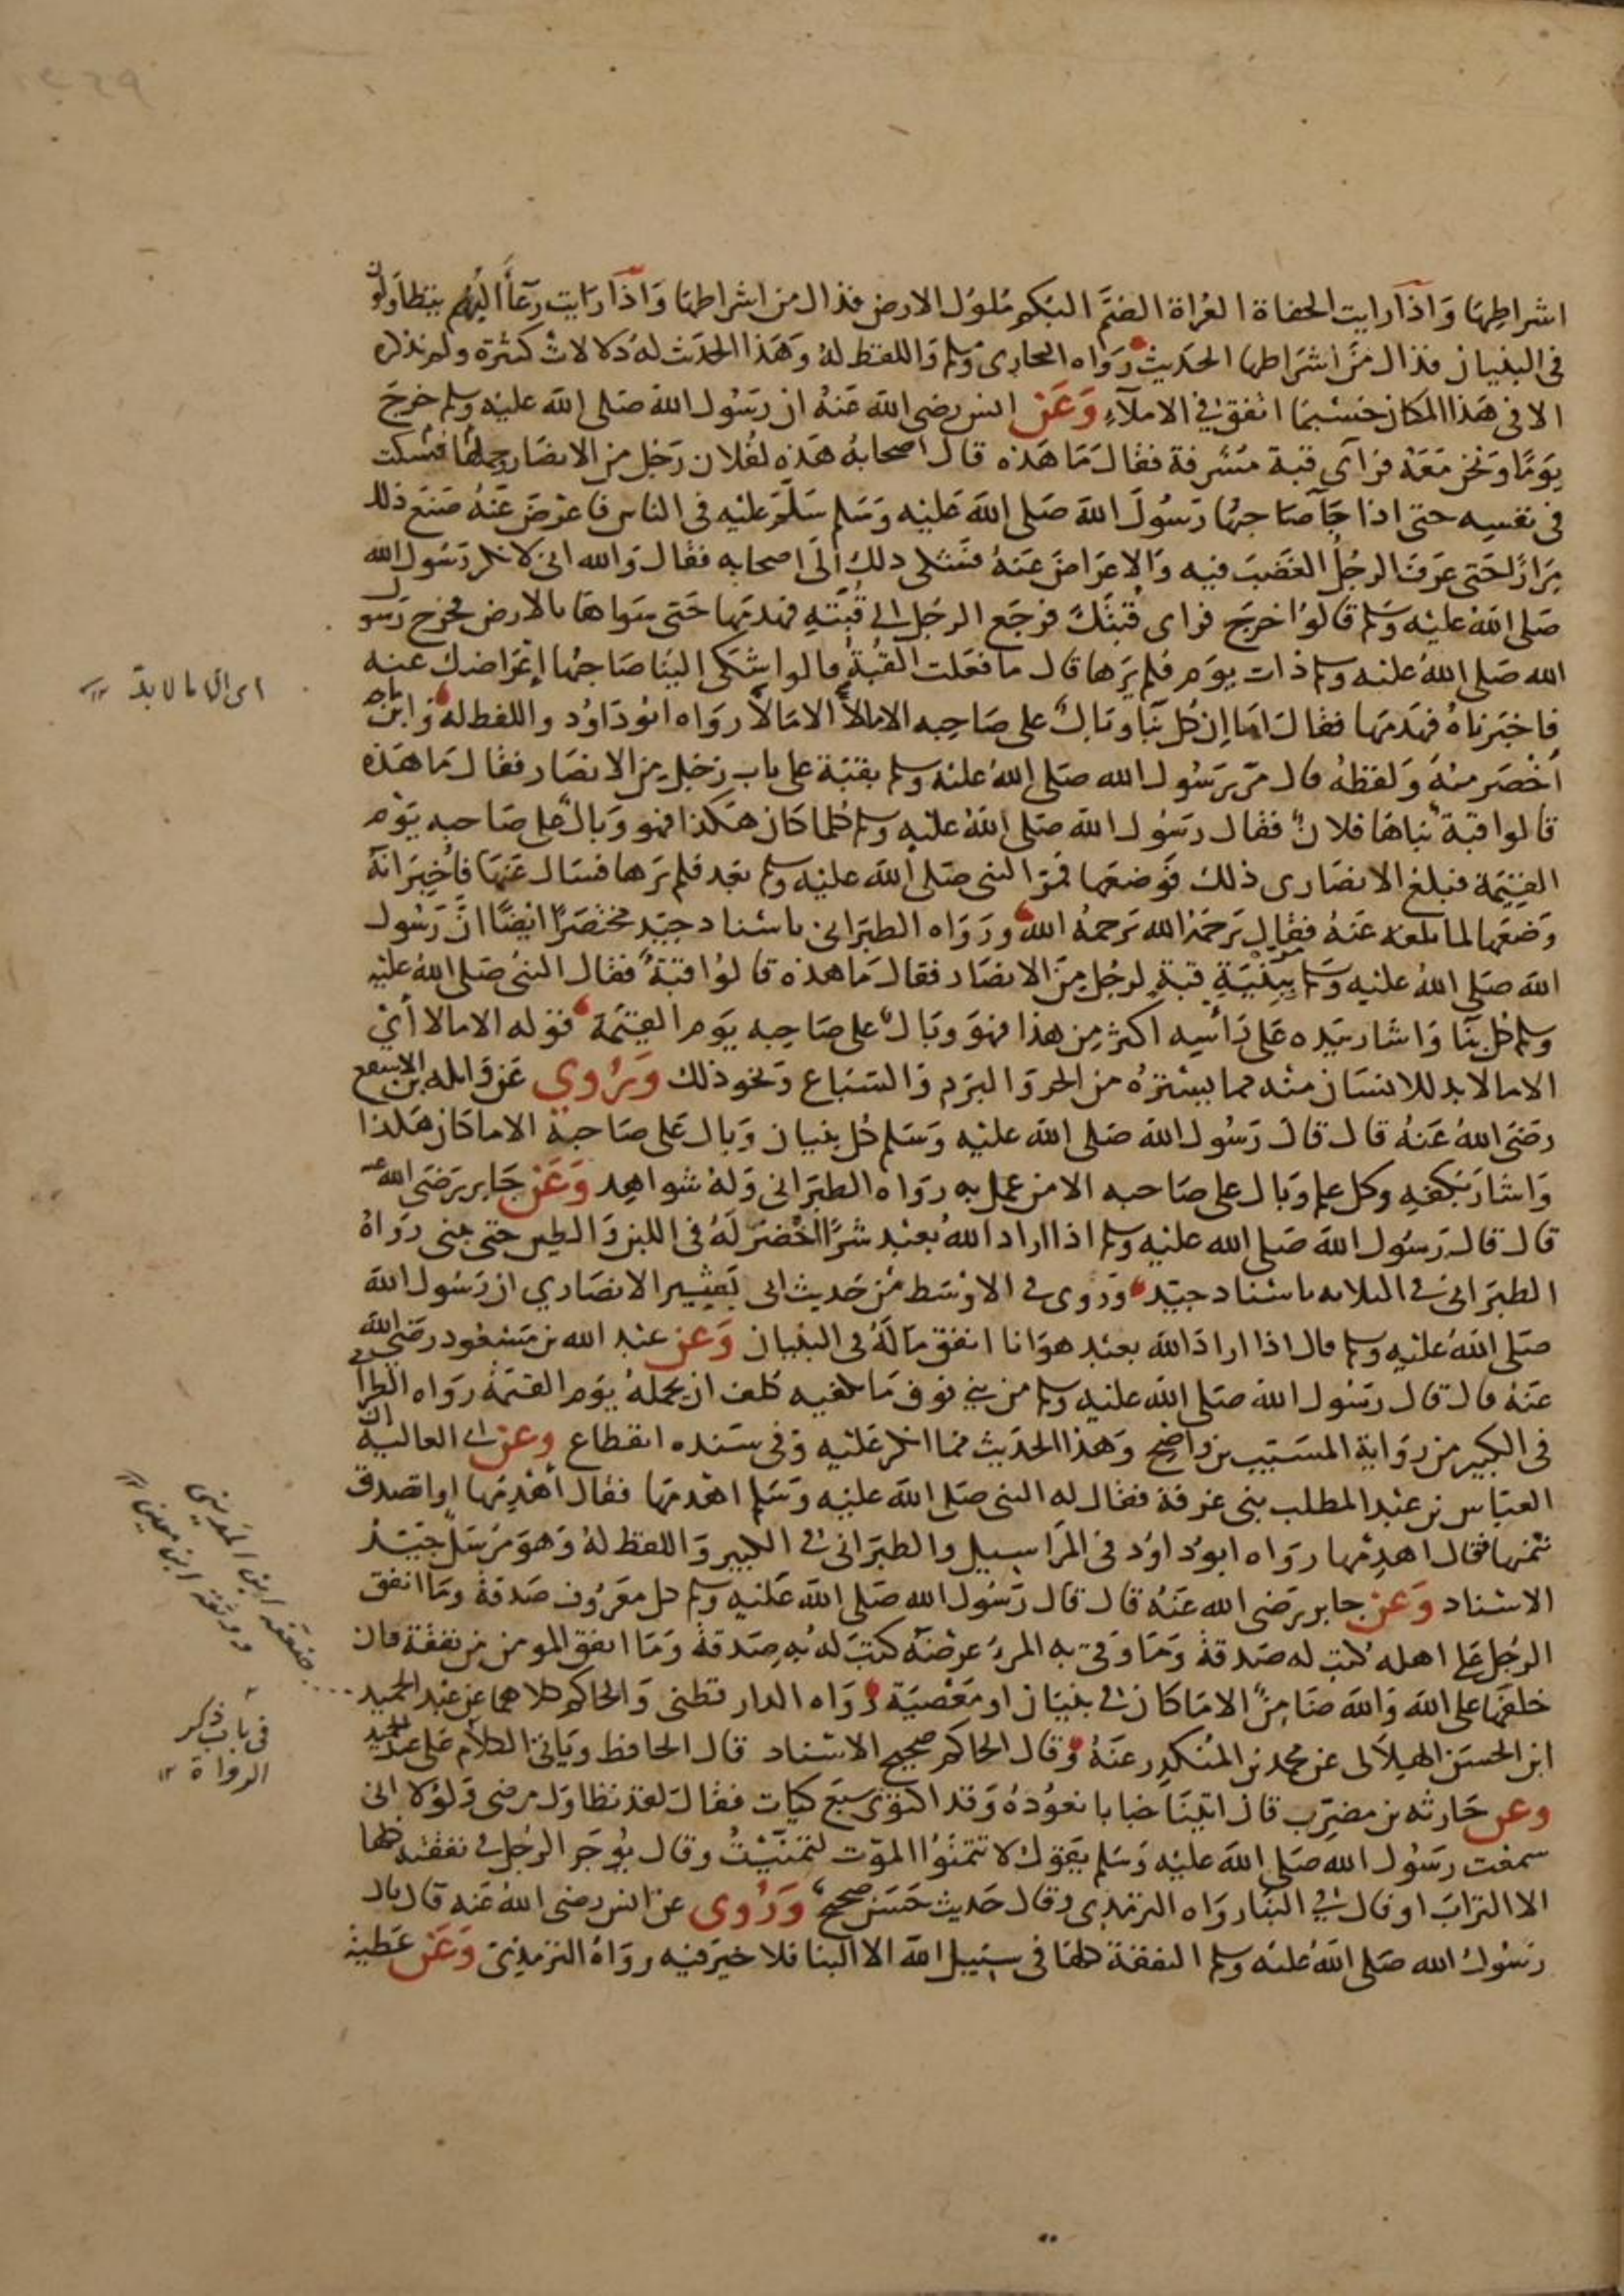 اشراطها واذا رايت الحفاة العراة الصم البكم ملوك الارض فذاك من اشراطها واذا رايت رعاء البهم يتطاولون
فى البنيان فذاك من اشراطها الحديث رواه البخارى ومسلم واللفظ له وهذا الحديث له دلالات كثيرة ولم نذكره
الا فى هذا المكان حسبما اتفق في الاملاء وعن انس رضى الله عنه ان رسول الله صلى الله عليه وسلم خرج
يوما ونحن معه فرآى قبة مشرفة فقال ما هذه قال اصحابه هذه لفلان رجل من الانصار فسكت وحملها
فى نفسه حتى اذا جآ صاحبها رسول الله صلى الله عليه وسلم سلم عليه فى الناس فاعرض عنه صنع ذلك
مرارا حتى عرف الرجل الغضب فيه والاعراض عنه فشكى ذلك الى اصحابه فقال والله انى لانكر رسول الله
صلى الله عليه وسلم قالوا خرج فراى قبتك فرجع الرجل الى قبته فهدمها حتى سواها بالارض فخرج رسول
الله صلى الله عليه وسلم ذات يوم فلم يرها قال ما فعلت القبة قالوا شكى الينا صاحبها إعراضك عنه
فاخبرناه فهدمها فقال اما ان كل بنآ وبال على صاحبه الا مالا الا مالا رواه ابو داود واللفظ له وابن ماجه
أخصر منه ولفظه قال مر رسول الله صلى الله عليه وسلم بقبة على باب رجل من الانصار فقال ما هذه
قالوا قبة بناها فلان فقال رسول الله صلى الله عليه وسلم كلما كان هكذا فهو وبال على صاحبه يوم
القيمة فبلغ الانصارى ذلك فوضعها فمر النبى صلى الله عليه وسلم بعد فلم يرها فسال عنها فأخبر انه
وضعها لما بلغه عنه فقال يرحمه الله يرحمه الله ورواه الطبرانى باسناد جيد مختصرا ايضا ان رسول
الله صلى الله عليه وسلم مر ببنية قبة لرجل من الانصار فقال ما هذه قالوا قبة فقال النبى صلى الله عليه
وسلم كل بنآ واشار بيده على رأسه اكثر من هذا فهو وبال على صاحبه يوم القيمة قوله الا مالا أى
الا مالا بد للانسان منه مما يستره من الحر والبرد والسباع ونحو ذلك وروي عن واثلة بن الاسقع
رضى الله عنه قال قال رسول الله صلى الله عليه وسلم كل بنيان وبال على صاحبه الا ما كان هكذا
واشار بكفه وكل علم وبال على صاحبه الا من عمل به رواه الطبرانى وله شواهد وعن جابر رضى الله عنه
قال قال رسول الله صلى الله عليه وسلم اذا اراد الله بعبد شرا اخضر له فى اللبن والطين حتى يبنى رواه
الطبرانى فى الثلاثه باسناد جيد وروى فى الاوسط من حديث ابى بشير الانصاري ان رسول الله
صلى الله عليه وسلم قال اذا اراد الله بعبد هوانا انفق ماله فى البنيان وعن عبد الله بن مسعود رضى الله
عنه قال قال رسول الله صلى الله عليه وسلم من بنى فوق ما يكفيه كلف ان يحمله يوم القيمة رواه الطبرانى
فى الكبير من رواية المسيب بن واضح وهذا الحديث مما انكر عليه وفى سنده انقطاع وعن ابى العالية ان
العباس بن عبد المطلب بنى غرفة فقال له النبى صلى الله عليه وسلم اهدمها فقال أهدمها او اتصدق
بثمنها فقال اهدمها رواه ابو داود فى المراسيل والطبرانى فى الكبير واللفظ له وهو مرسل جيد
الاسناد وعن جابر رضى الله عنه قال قال رسول الله صلى الله عليه وسلم كل معروف صدقة وما انفق
الرجل على اهله كتب له صدقة وما وقى به المرء عرضه كتب له به صدقة وما انفق المومن من نفقة فان
خلفها على الله والله ضامن الا ما كان فى بنيان او معصية رواه الدارقطنى والحاكم كلاهما عن عبد الحميد
ابن الحسن الهلالى عن محمد بن المنكدر عنه وقال الحاكم صحيح الاسناد قال الحافظ وياتى الكلام على عبد الحميد
وعن حارثه بن مضرب قال اتينا خبابا نعوده وقد اكتوى سبع كيات فقال لقد تطاول مرضى ولولا انى
سمعت رسول الله صلى الله عليه وسلم يقول لا تتمنوا الموت لتمنيت وقال يؤجر الرجل فى نفقته كلها
الا التراب او قال فى البنآ رواه الترمذى وقال حديث حسن صحيح وروى عن انس رضى الله عنه قال قال
رسول الله صلى الله عليه وسلم النفقة كلها فى سبيل الله الا البنا فلا خير فيه رواه الترمذى وعن عطية
اى الا ما لا بد
ضعفه ابن المدينى
ووثقه ابن معين
فى باب ذكر
الرواة ١٢